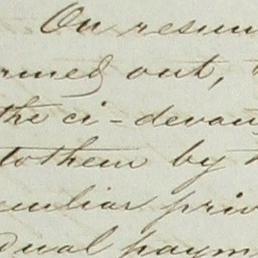 On resum
rmed out,
the ci-devan
to them by
eculiar priv
dual paym